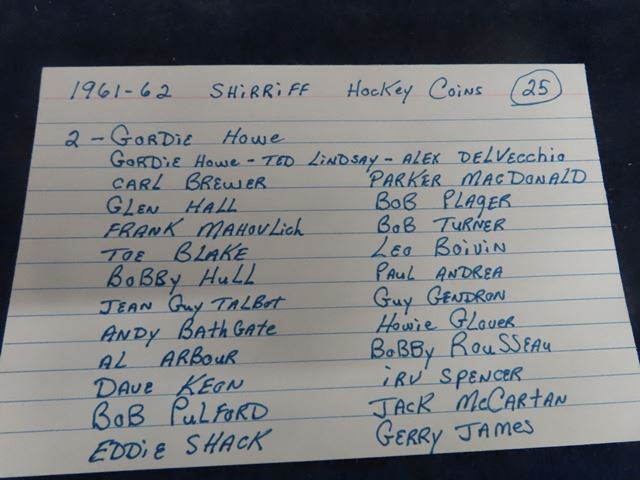 1961-62 SHiRRiFF Hockey Coins 25
2 - GORDiE Howe
GORDiE Howe - TED LiNDSAY - ALEX DELVEcchio
CARL BREWER PARKER MACDONALD
GLEN HALL BOB PLAGER
FRANK MAHOVLich BOB TURNER
TOE BLAKE LEO BOiViN
BOBBY HULL PAUL ANDREA
JEAN Guy TALBOT Guy GENDRON
ANDY BATHGATE Howie GLOVER
AL ARBOUR BOBBY ROUSSEAU
DAVE KEON iRV SPENCER
BOB PULFORD JACK McCARTAN
EDDiE SHACK GERRY JAMES